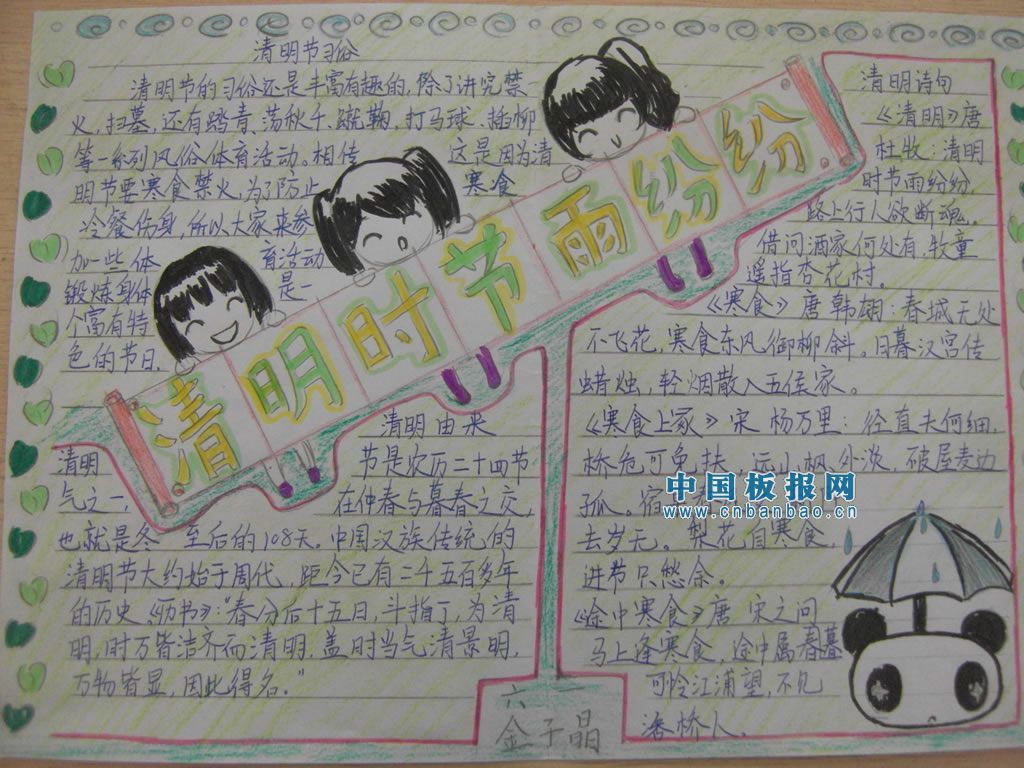 清明节习俗
清明节的习俗还是丰富有趣的,除了讲究禁
火、扫墓,还有踏青、荡秋千、蹴鞠、打马球、插柳
等一系列风俗体育活动。相传 这是因为清
明节要寒食禁火,为了防止 寒食
冷餐伤身,所以大家来参
加一些体 育活动
锻炼身体 是一
个富有特
色的节日。
清明时节雨纷纷
清明诗句
《清明》唐
杜牧:清明
时节雨纷纷
路上行人欲断魂。
借问酒家何处有,牧童
遥指杏花村。
《寒食》唐 韩翃:春城无处
不飞花,寒食东风御柳斜。日暮汉宫传
蜡烛,轻烟散入五侯家。
《寒食上冢》宋 杨万里:径直夫何细,
桥危可免扶。远小枫外淡,破屋麦边
孤。宿
去岁无。梨花自寒食,
进节只愁余。
《途中寒食》唐 宋之问
马上逢寒食,途中属暮春
可怜江浦望,不见
洛桥人。
清明由来
清明 节是农历二十四节
气之一, 在仲春与暮春之交,
也就是冬 至后的108天。中国汉族传统的
清明节大约始于周代,距今已有二千五百多年
的历史。《历书》:“春分后十五日,斗指丁,为清
明,时万皆洁齐而清明,盖时当气清景明,
万物皆显,因此得名。”
六一
金子晶
中国板报网
www.cnbanbao.cn